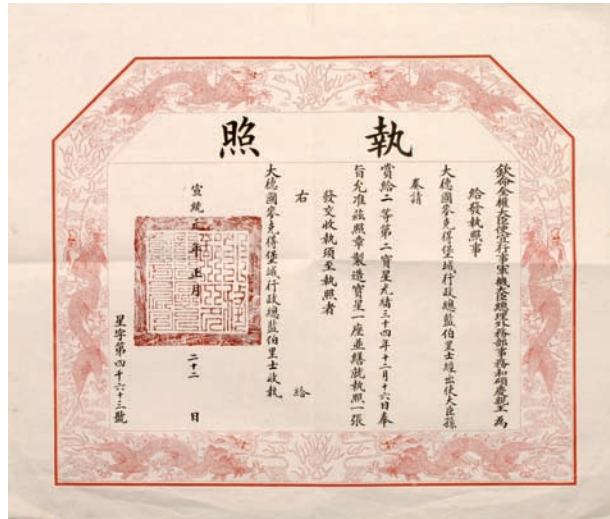 執照
欽命全權大臣便宜行事軍機大臣總理外務部事務和碩慶親王 為
給發執照事
大德國麥克得堡城行政總監伯里士經出使大臣孫
奏請
賞給二等第二寶星光緒三十四年十二月十六日奉
旨允准茲照章製造寶星一座並繕就執照一張
發交收執須至執照者
右 給
大德國麥克得堡城行政總監伯里士收執
宣統元年正月 二十二 日
星字第四千六十三號